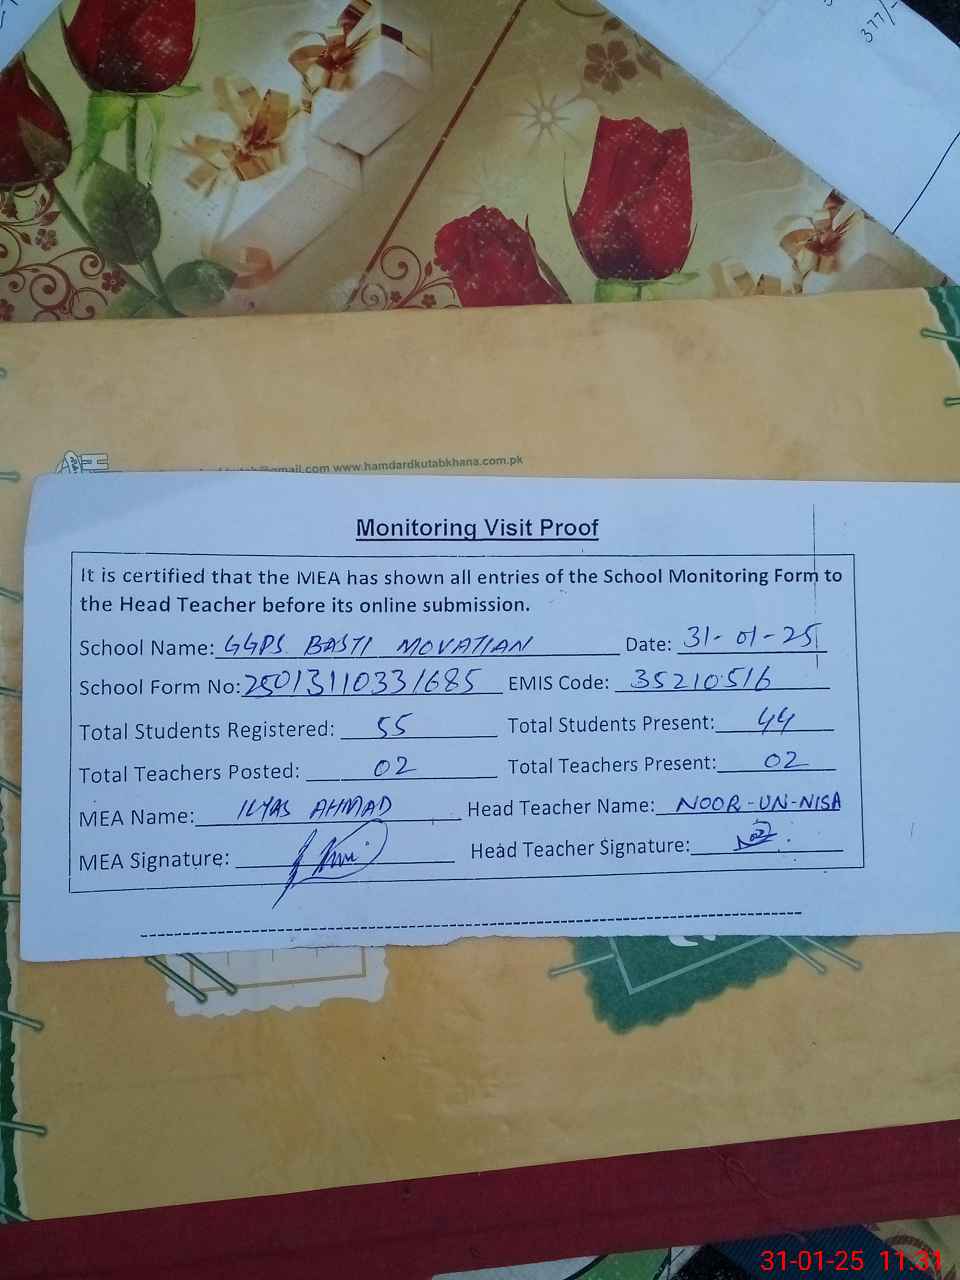 377/-
www.hamdardkutabkhana.com.pk
Monitoring Visit Proof
It is certified that the MEA has shown all entries of the School Monitoring Form to
the Head Teacher before its online submission.
School Name: GGPS. BASTI MOVATIAN Date: 31-01-25
School Form No: 25013110331685 EMIS Code: 35210516
Total Students Registered: 55 Total Students Present: 44
Total Teachers Posted: 02 Total Teachers Present: 02
MEA Name: ILYAS AHMAD Head Teacher Name: NOOR-UN-NISA
MEA Signature: Head Teacher Signature:
31-01-25 11:31